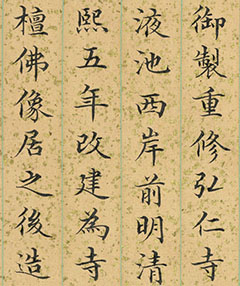 御製重修弘仁寺
液池西岸前明清
熙五年改建為寺
檀佛像居之後造